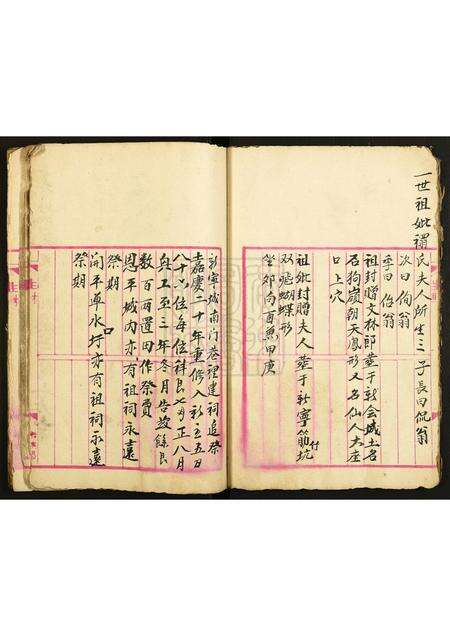 一世祖妣禤氏夫人所生三子長曰侃翁
次曰侚翁
季曰佁翁
祖封贈文林郎葬于新會城土名
石狗嶺朝天鳳形又名仙人大座
口上穴
祖妣封贈夫人葬于新寧筋坑
双飛蝴蝶形
坐卯向酉兼甲庚
新寧城南門巷裡建祠追祭
嘉慶二十年重修入新主五百
八十六位每位科艮七両正八月
興工至三年冬月告竣餘艮
数百両置田作祭員
恩平城內亦有祖祠永遠
祭期
開平單水圩亦有祖祠永遠
祭期